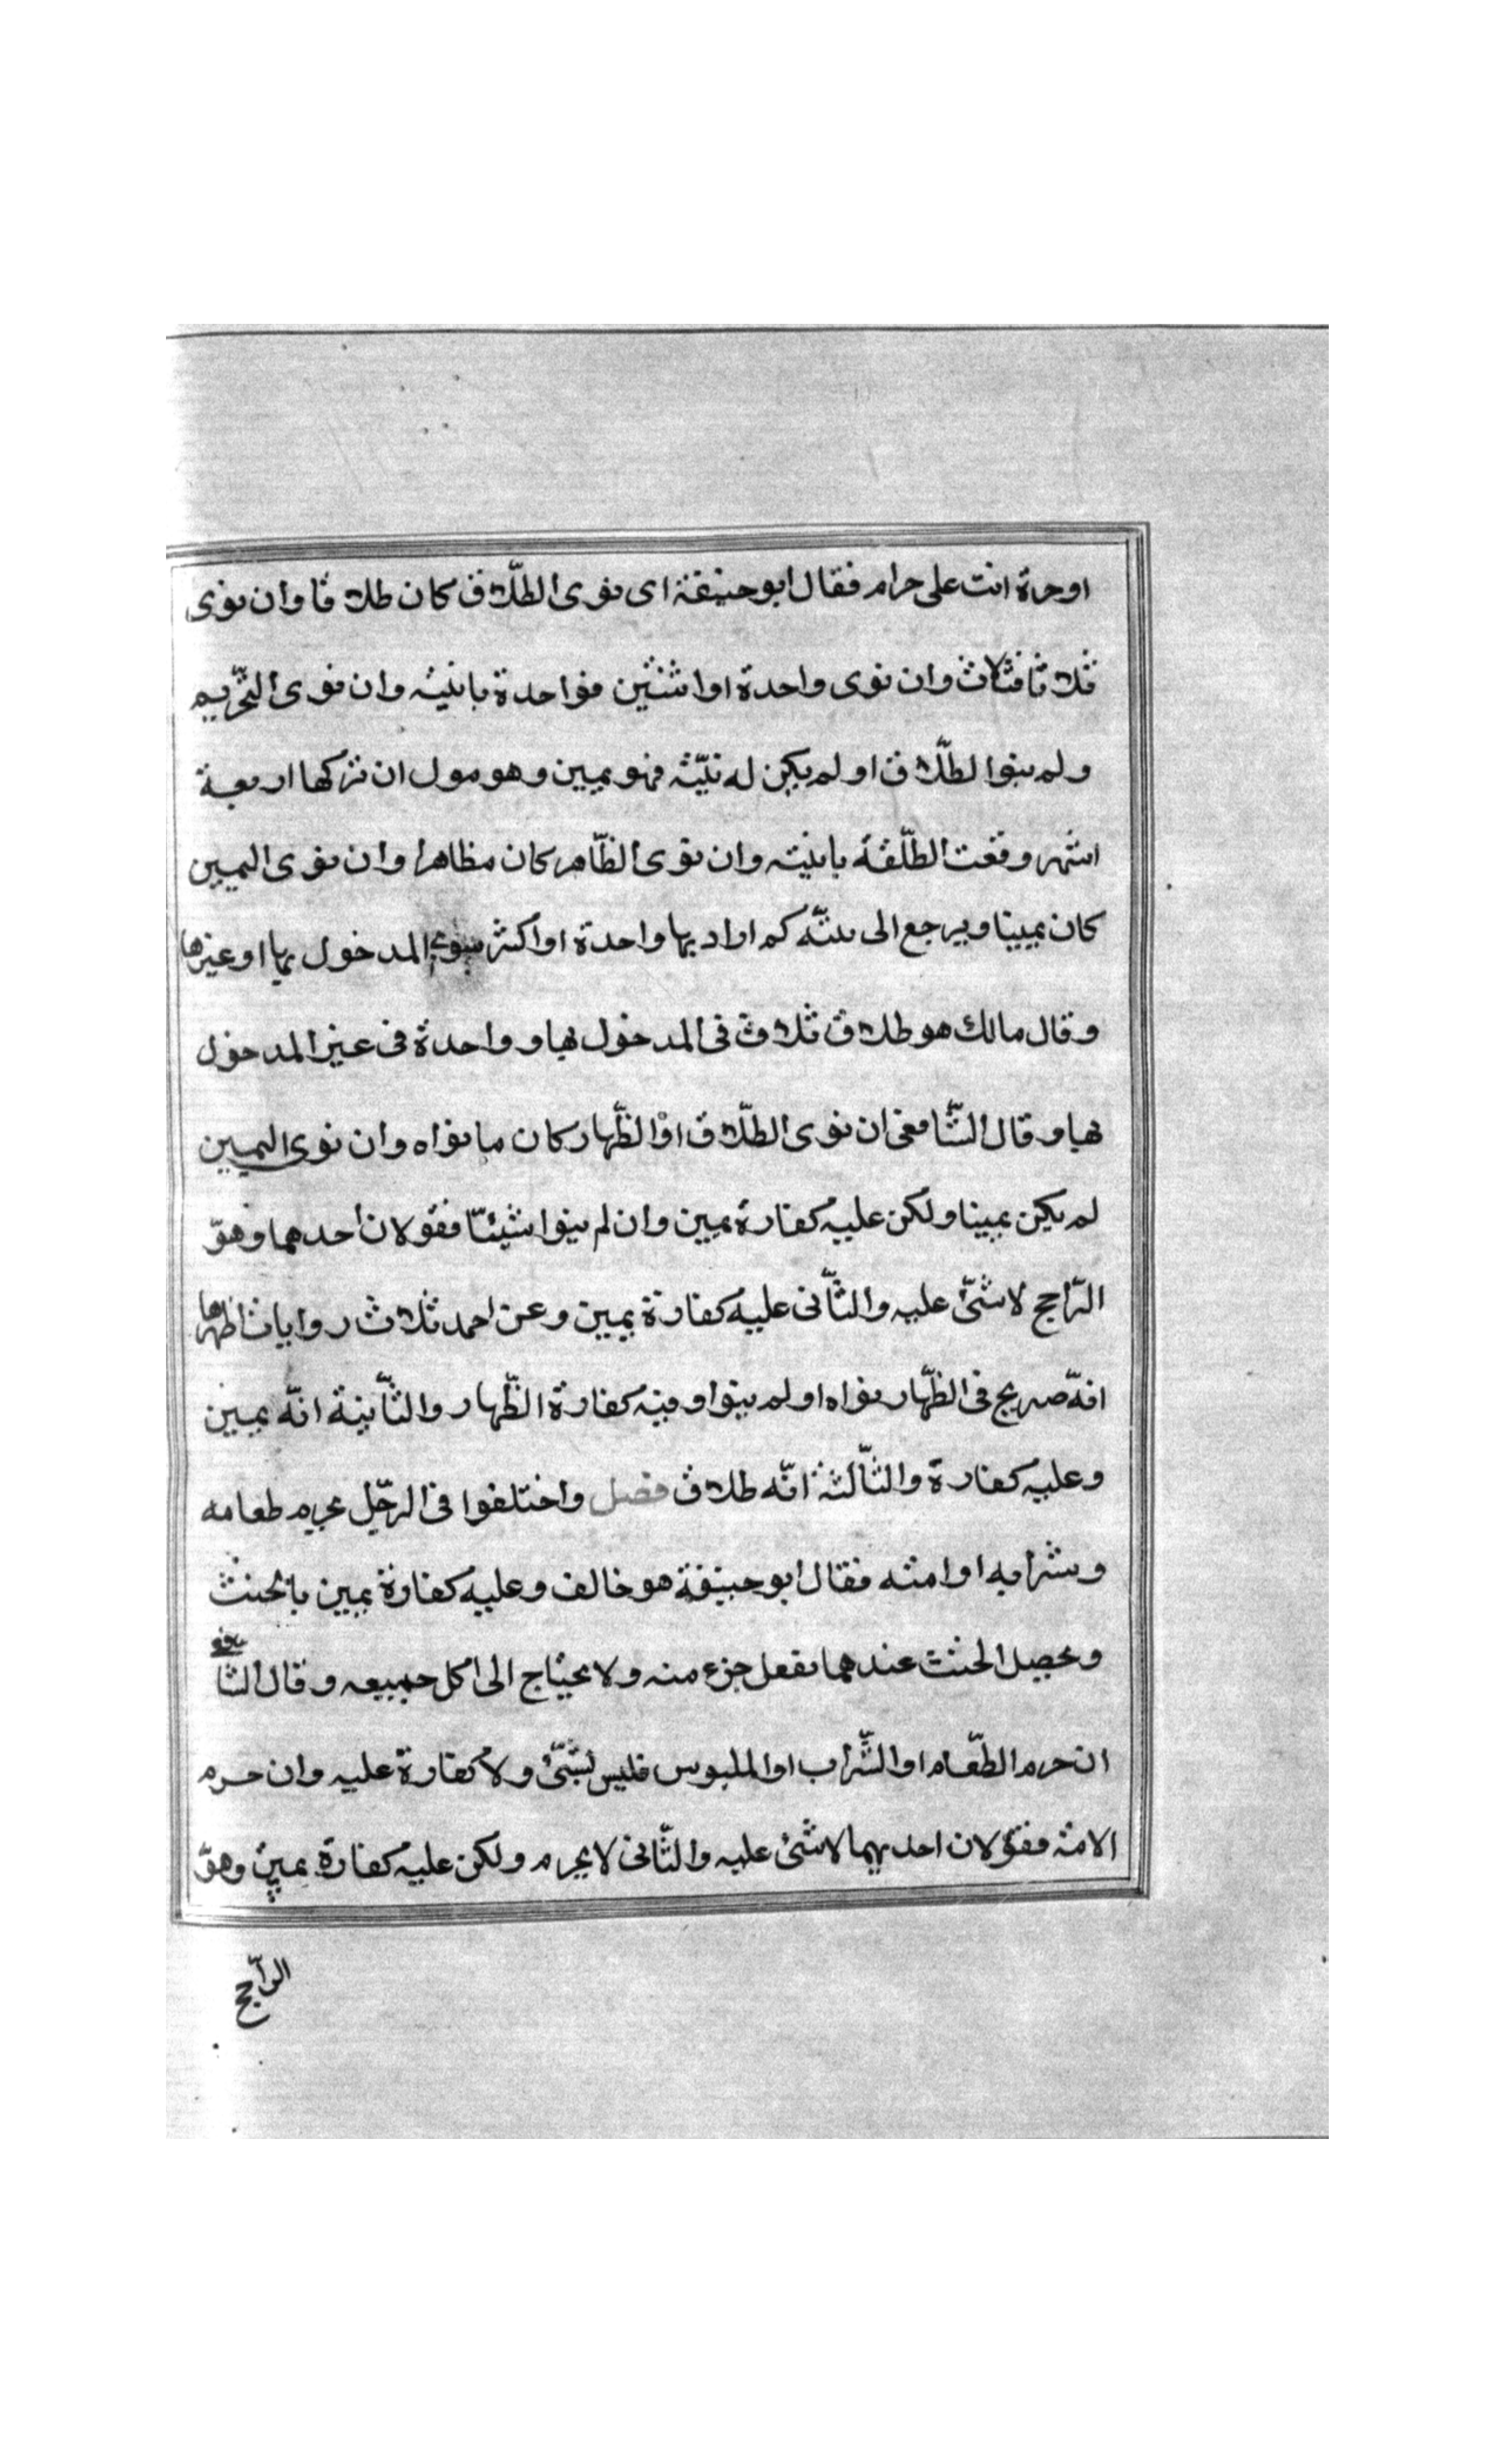 او حرة انت على حرام فقال ابو حنيفة اى نوى الطّلاق كان طلاقا وان نوى
ثلاثا فثلاث وان نوى واحدة او اثنتين فواحدة باينية وان نوى التّحريم
ولم ينوا لطّلاق او لم يكن له نيّة فهو يمين وهو مول ان تركها اربعة
اشهر وقعت الطّلقة باينية وان نوى الظّاهر كان مظاهرا وان نوى اليمين
كان يمينا ويرجع الى نيّته كم اراد بها واحدة او اكثر المدخول بها او غيرها
وقال مالك هو طلاق ثلاث فى المدخول بها وواحدة فى غير المدخول
بها وقال الشّافعى ان نوى الطّلاق او الظّهار كان ما نواه وان نوى اليمين
لم يكن يمينا ولكن عليه كفارة يمين وان لم ينوا شيئا فقولان احدهما وهو
الرّاجح لا شئ عليه والثّانى عليه كفارة يمين وعن احمد ثلاث روايات اظهرها
انه صريح فى الظّهار نواه او لم ينوا وفيه كفارة الظّهار والثّانية انّه يمين
وعليه كفارة والثّالثة انّه طلاق فصل واختلفوا فى الرجّل يحرم طعامه
وشرابه او امته فقال ابو حنيفة هو خالف وعليه كفارة يمين بالحنث
ويحصل الحنث عندهما بفعل جزء منه ولا يحتاج الى اكل جميعه وقال الشافعى
ان حرم الطّعام او الشّراب او الملبوس فليس بشئ ولا كفارة عليه وان حرم
الامة فقولان احديهما لا شئ عليه والثّانى لا يحرم ولكن عليه كفارة يمين وهو
الرّاجح